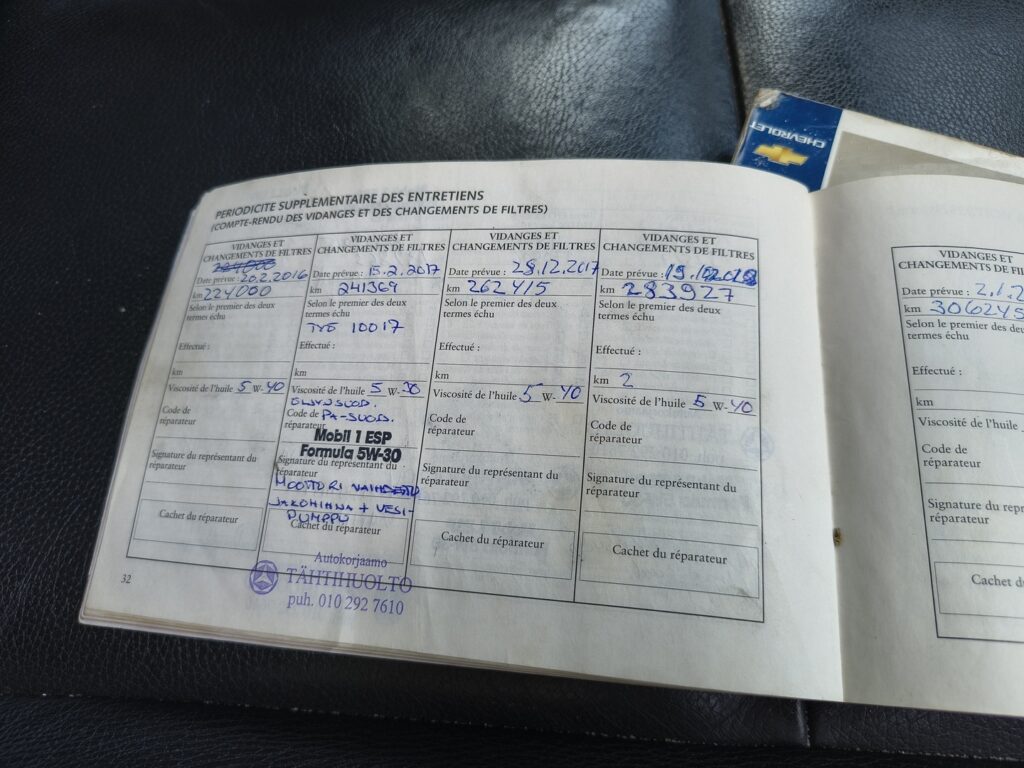 CHEVROLET
PERIODICITE SUPPLEMENTAIRE DES ENTRETIENS
(COMPTE-RENDU DES VIDANGES ET DES CHANGEMENTS DE FILTRES)
VIDANGES ET
CHANGEMENTS DE FILTRES
Date prévue : 20.2.2016
km 224000
Selon le premier des deux
termes échu
Effectué :
km
Viscosité de l'huile 5 W- 40
Code de
réparateur
Signature du représentant du
réparateur
Cachet du réparateur
VIDANGES ET
CHANGEMENTS DE FILTRES
Date prévue : 15.2.2017
km 241369
Selon le premier des deux
termes échu
TYÖ 10017
Effectué :
km
Viscosité de l'huile 5 W- 30
ÖLJYNSUOD.
Code de PA-SUOD.
réparateur
Mobil 1 ESP
Formula 5W-30
Signature du représentant du
réparateur
MOOTTORI VAIHDETTU
JAKOHIHNA + VESI-
PUMPPU
Cachet du réparateur
Autokorjaamo
TÄHTIHUOLTO
puh. 010 292 7610
VIDANGES ET
CHANGEMENTS DE FILTRES
Date prévue : 28.12.2017
km 262415
Selon le premier des deux
termes échu
Effectué :
km
Viscosité de l'huile 5 W- 40
Code de
réparateur
Signature du représentant du
réparateur
Cachet du réparateur
VIDANGES ET
CHANGEMENTS DE FILTRES
Date prévue :
km 283927
Selon le premier des deux
termes échu
Effectué :
km 2
Viscosité de l'huile 5 W- 40
Code de
réparateur
Signature du représentant du
réparateur
Cachet du réparateur
32
VIDANGES ET
CHANGEMENTS DE
Date prévue : 2.1.2
km 306245
Selon le premier des deux
termes échu
Effectué :
km
Viscosité de l'huile
Code de
réparateur
Signature du représen
réparateur
Cachet du